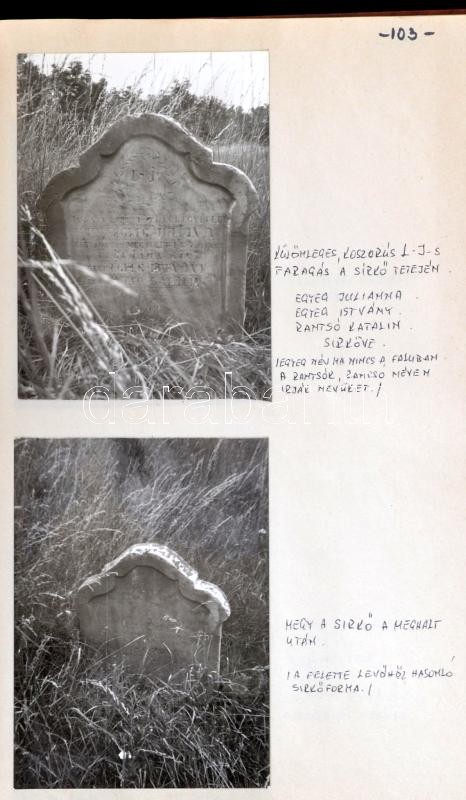 -103-
KÜLÖNLEGES, KOSZORÚS L-J-S
FARAGÁS A SIRKŐ TETEJÉN.
EGYEG JULIANNA.
EGYEG ISTVÁNY.
RANTSÓ KATALIN.
SIRKÖVE.
/EGYEG NÉV MA NINCS A FALUBAN
A RANTSÓK, RANCSO NÉVEN
IRJÁK NEVÜKET./
darabanth
MEGY A SIRKŐ A MEGHALT
UTÁN.
/A FELETTE LEVŐHÖZ HASONLÓ
SIRKŐFORMA./